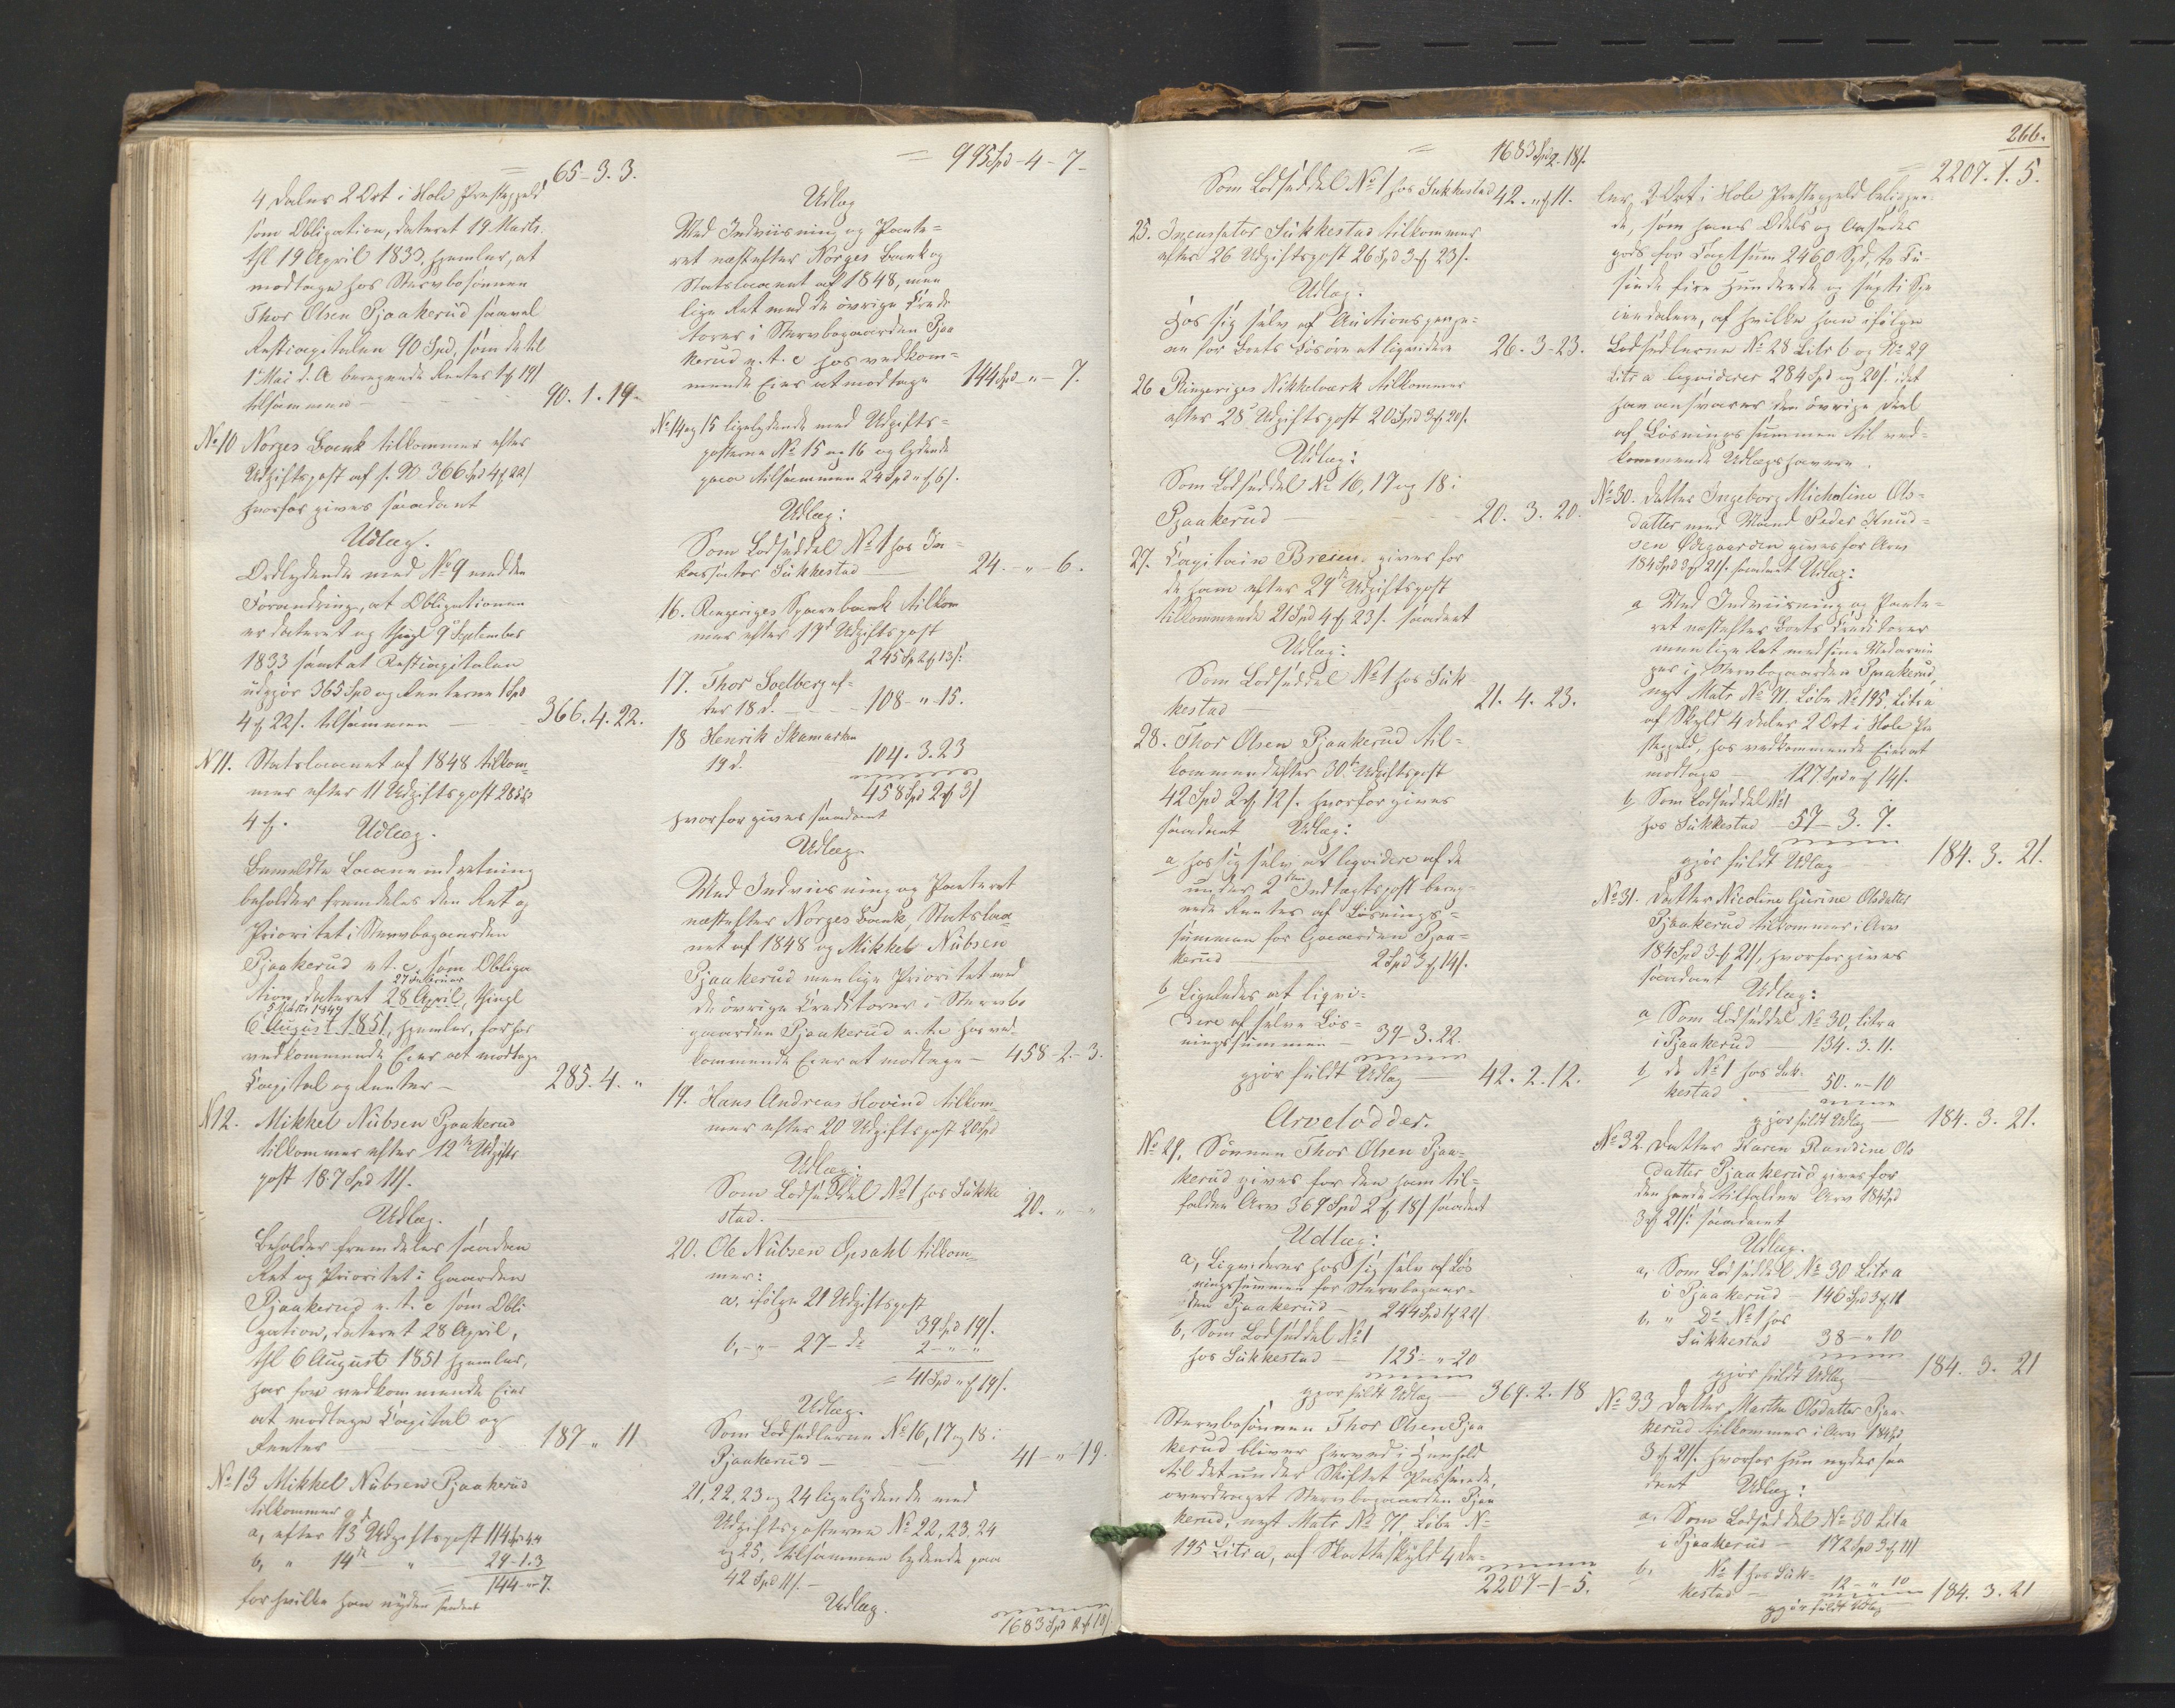 = 65-3.3.
4 Daler 2 Ort i Hole Præstegjeld
som Obligation, dateret 19 Marts,
thl 19 April 1833, hjemler, at
modtage hos Stervbosønnen
Thor Olsen Pjaakerud saavel
Restcapitalen 90 Spd, som de til
1 Mai d. A. beregnede Renter 1 ф 19 /
tilsammen — 90. 1. 19.
No 10 Norges Bank tilkommer efter
Udgiftspost af s. No 366 Spd 4 ф 22 /
hvorfor gives saadant
Udlæg.
Ordlydende med No 9 med den
Forandring, at Obligationen
er dateret og thingl 9 September
1833 samt at Restcapitalen
udgjør 365 Spd og Renterne 1 Spd
4 ф 22 /. tilsammen — 366. 4. 22.
N 11. Statslaanet af 1848 tilkom=
mer efter 11 Udgiftspost 285 Spd
4 ф. Udlæg.
Bemeldte Laaneindretning
beholder fremdeles den Ret og
Prioritet i Stervbogaarden
Pjaakerud n. t. c. som Obliga
27 Februar
tion, dateret 28 April, thingl
5 Marts 1849
6 August 1851, hjemler, for hos
vedkommende Eier at modtage
Capital og Renter — 285. 4. "
N 12. Mikkel Nubsen Pjaakerud
tilkommer efter 12te Udgifts
post 187 Spd 11 /.
Udlæg.
Beholder fremdeles saadan
Ret og Prioritet i Gaarden
Pjaakerud n. t. c som Obli
gation, dateret 28 April,
thl 6 August 1851 hjemler,
hos vedkommende Eier
at modtage Capital og
Renter — 187 " 11
No 13 Mikkel Nubsen Pjaakerud
tilkommer
a, efter 13de Udgiftspost 114 Spd 4.4
b, " 14de " 29-1.3
= 144 - " 7.
for hvilke han nyder saadant
= 995 Spd - 4 - 7
Udlæg
Med Indviisning og Pante=
ret næstefter Norges Bank og
Statslaanet af 1848, men
lige Ret med de øvrige Credi
torer i Stervbogaarden Pjaa
kerud n. t. c hos vedkom=
mende Eier at modtage 144 Spd " - 7.
No 14 og 15 ligelydende med Udgifts=
posterne No 15 og 16 og lydende
paa tilsammen 24 Spd " ф 6 /.
Udlæg:
Som Lodseddel No 1 hos In=
kassator Sukkestad — 24. - " - 6.
16. Ringeriges Sparebank tilkom
mer efter 17d Udgiftspost
245 Sp 2 ф 13 /:
17. Thor Soelberg ef=
ter 18 d. — 108 " 15.
18 Henrik Skamarken
19 d. 104. 3. 23
458 Spd 2 ф 3 /
hvorfor gives saadant
Udlæg.
Med Indviisning og Panteret
næstefter Norges Bank, Statslaa
net af 1848 og Mikkel Nubsen
Pjaakerud men lige Prioritet med
de øvrige Creditorer i Stervbo
gaarden Pjaakerud n. t. c hos ved=
kommende Eier at modtage — 458-2-3.
19. Hans Andreas Hovind tilkom=
mer efter 20 Udgiftspost 20 Spd
Udlæg:
Som Lodseddel No 1 hos Sukke
stad. — 20. " - "
20. Ole Nubsen Opsahl tilkom=
mer:
a, ifølge 21 Udgiftspost
39 Spd 19 /.
b, - " - 27 - do 2 - " - "
= 41 Spd " ф 19 /.
Udlæg.
Som Lodsedlerne No 16, 17 og 18 i
Pjaakerud — 41 - " 19.
21, 22, 23 og 24 ligelydende med
Udgiftsposterne No 22, 23, 24
og 25, tilsammen lydende paa
42 Spd 11 /. —
Udlæg.
1683 Spd 2 ф 18 /
= 1683 Spd 2. 18 /.
Som Lodseddel No 1 hos Sukkestad 42. " ф 11.
25. Incassator Sukkestad tilkommer
efter 26 Udgiftspost 26 Spd 3 ф 23 /.
Udlæg.
Hos sig selv af Auctionspenge=
ne for Boets Løsøre at liqvidere 26. 3-23.
26 Ringeriges Nikkelværk tilkommer
efter 28d Udgiftspost 20 Spd 3 ф 20 /.
Udlæg:
Som Lodseddel No 16, 17 og 18 i
Pjaakerud — 20. 3. 20.
27. Capitain Breien gives for
de ham efter 29de Udgiftspost
tilkommende 21 Spd 4 ф 23 /. saadant
Udlæg:
Som Lodseddel No 1 hos Suk
kestad — 21. 4. 23.
28. Thor Olsen Pjaakerud til=
kommer efter 30te Udgiftspost
42 Spd 2 ф 12 /. hvorfor gives
saadant Udlæg:
a, hos sig selv at liqvidere af de
under 2den Indtægtspost bereg=
nede Renter af Løsnings=
summen for Gaarden Pjaa=
kerud — 2 Spd 3 ф 14 /.
b Ligeledes at liqvi=
dere af selve Løs=
ningssummen — 39-3.22.
gjør fuldt Udlæg — 42. 2. 12.
Arvelodder.
No 29. Sønnen Thor Olsen Pjaa=
kerud gives for den ham til=
faldne Arv 369 Spd 2 ф 18 / saadant
Udlæg:
a, Liqvideres hos sig selv af Løs
ningssummen for Stervbogaar=
den Pjaakerud — 244 Spd 1 ф 22 /
b, Som Lodseddel No 1
hos Sukkestad — 125 - " - 20
gjør fuldt Udlæg — 369. 2. 18
Stervbosønnen Thor Olsen Pjaa
kerud bliver herved i Henhold
til det under Skiftet Passerede,
overdraget Stervbogaarden Pjaa
kerud, nyt Matr No 71, Løbe No
195 Litr a, af Skatteskyld 4 Da=
2207-1-5.
266.
= 2207. 1. 5.
ler 2 Ort i Hole Præstegjeld beliggen=
de, som hans Odels og Aasædes
gods for Taxtsum 2460 Spd, to Tu
sinde fire Hundrede og sexti Spe
ciedaler, af hvilke han ifølge
Lodsedlerne No 28 Litr b og No 29
Litr a liqviderer 284 Spd og 20 /. idet
han ansvarer den øvrige Deel
af Løsningssummen til ved=
kommende Udlægshavere.
No 30. Datter Ingeborg Micheline Ols=
datter med Mand Peder Knud=
sen Ødegaarden gives for Arv
184 Spd 3 ф 21 /. saadant Udlæg:
a Med Indviisning og Pante=
ret næstefter Boets Creditorer
men lige Ret med sine Medarvin
ger i Stervbogaarden Pjaakerud,
nyt Matr No 71, Løbe No 195, Litr a
af Skyld 4 Daler 2 Ort i Hole Præ
stegjeld, hos vedkommende Eier at
modtage — 127 Spd " ф 14 /.
b, Som Lodseddel No 1
hos Sukkestad — 57-3. 7.
gjør fuldt Udlæg — 184. 3. 21.
No 31. Datter Nicoline Gurine Olsdatter
Pjaakerud tilkommer i Arv
184 Spd 3 ф 21 /, hvorfor gives
saadant Udlæg:
a Som Lodseddel No 30, Litr a
i Pjaakerud — 134. 3. 11.
b do No 1 hos Suk=
kestad — 50. " - 10
gjør fuldt Udlæg — 184. 3. 21.
No 32. Datter Karen Randine Ols
datter Pjaakerud gives for
den hende tilfaldne Arv 184 Spd
3 ф 21 /: saadant
Udlæg.
a, Som Lodseddel No 30 Litr a
i Pjaakerud — 146 Spd 3 ф 11
b, " Do No 1 hos
Sukkestad 38 - " 10
gjør fuldt Udlæg — 184. 3. 21
No 33 Datter Marthe Olsdatter Pjaa=
kerud tilkommer i Arv 184 Spd
3 ф 21 /. hvorfor hun nyder saa
dant Udlæg:
a. Som Lodseddel No 30 Litr a
i Pjaakerud — 172 Spd 3 ф 11 /
b, No 1 hos Suk=
kestad — 12 - " 10
gjør fuldt Udlæg — 184. 3. 21